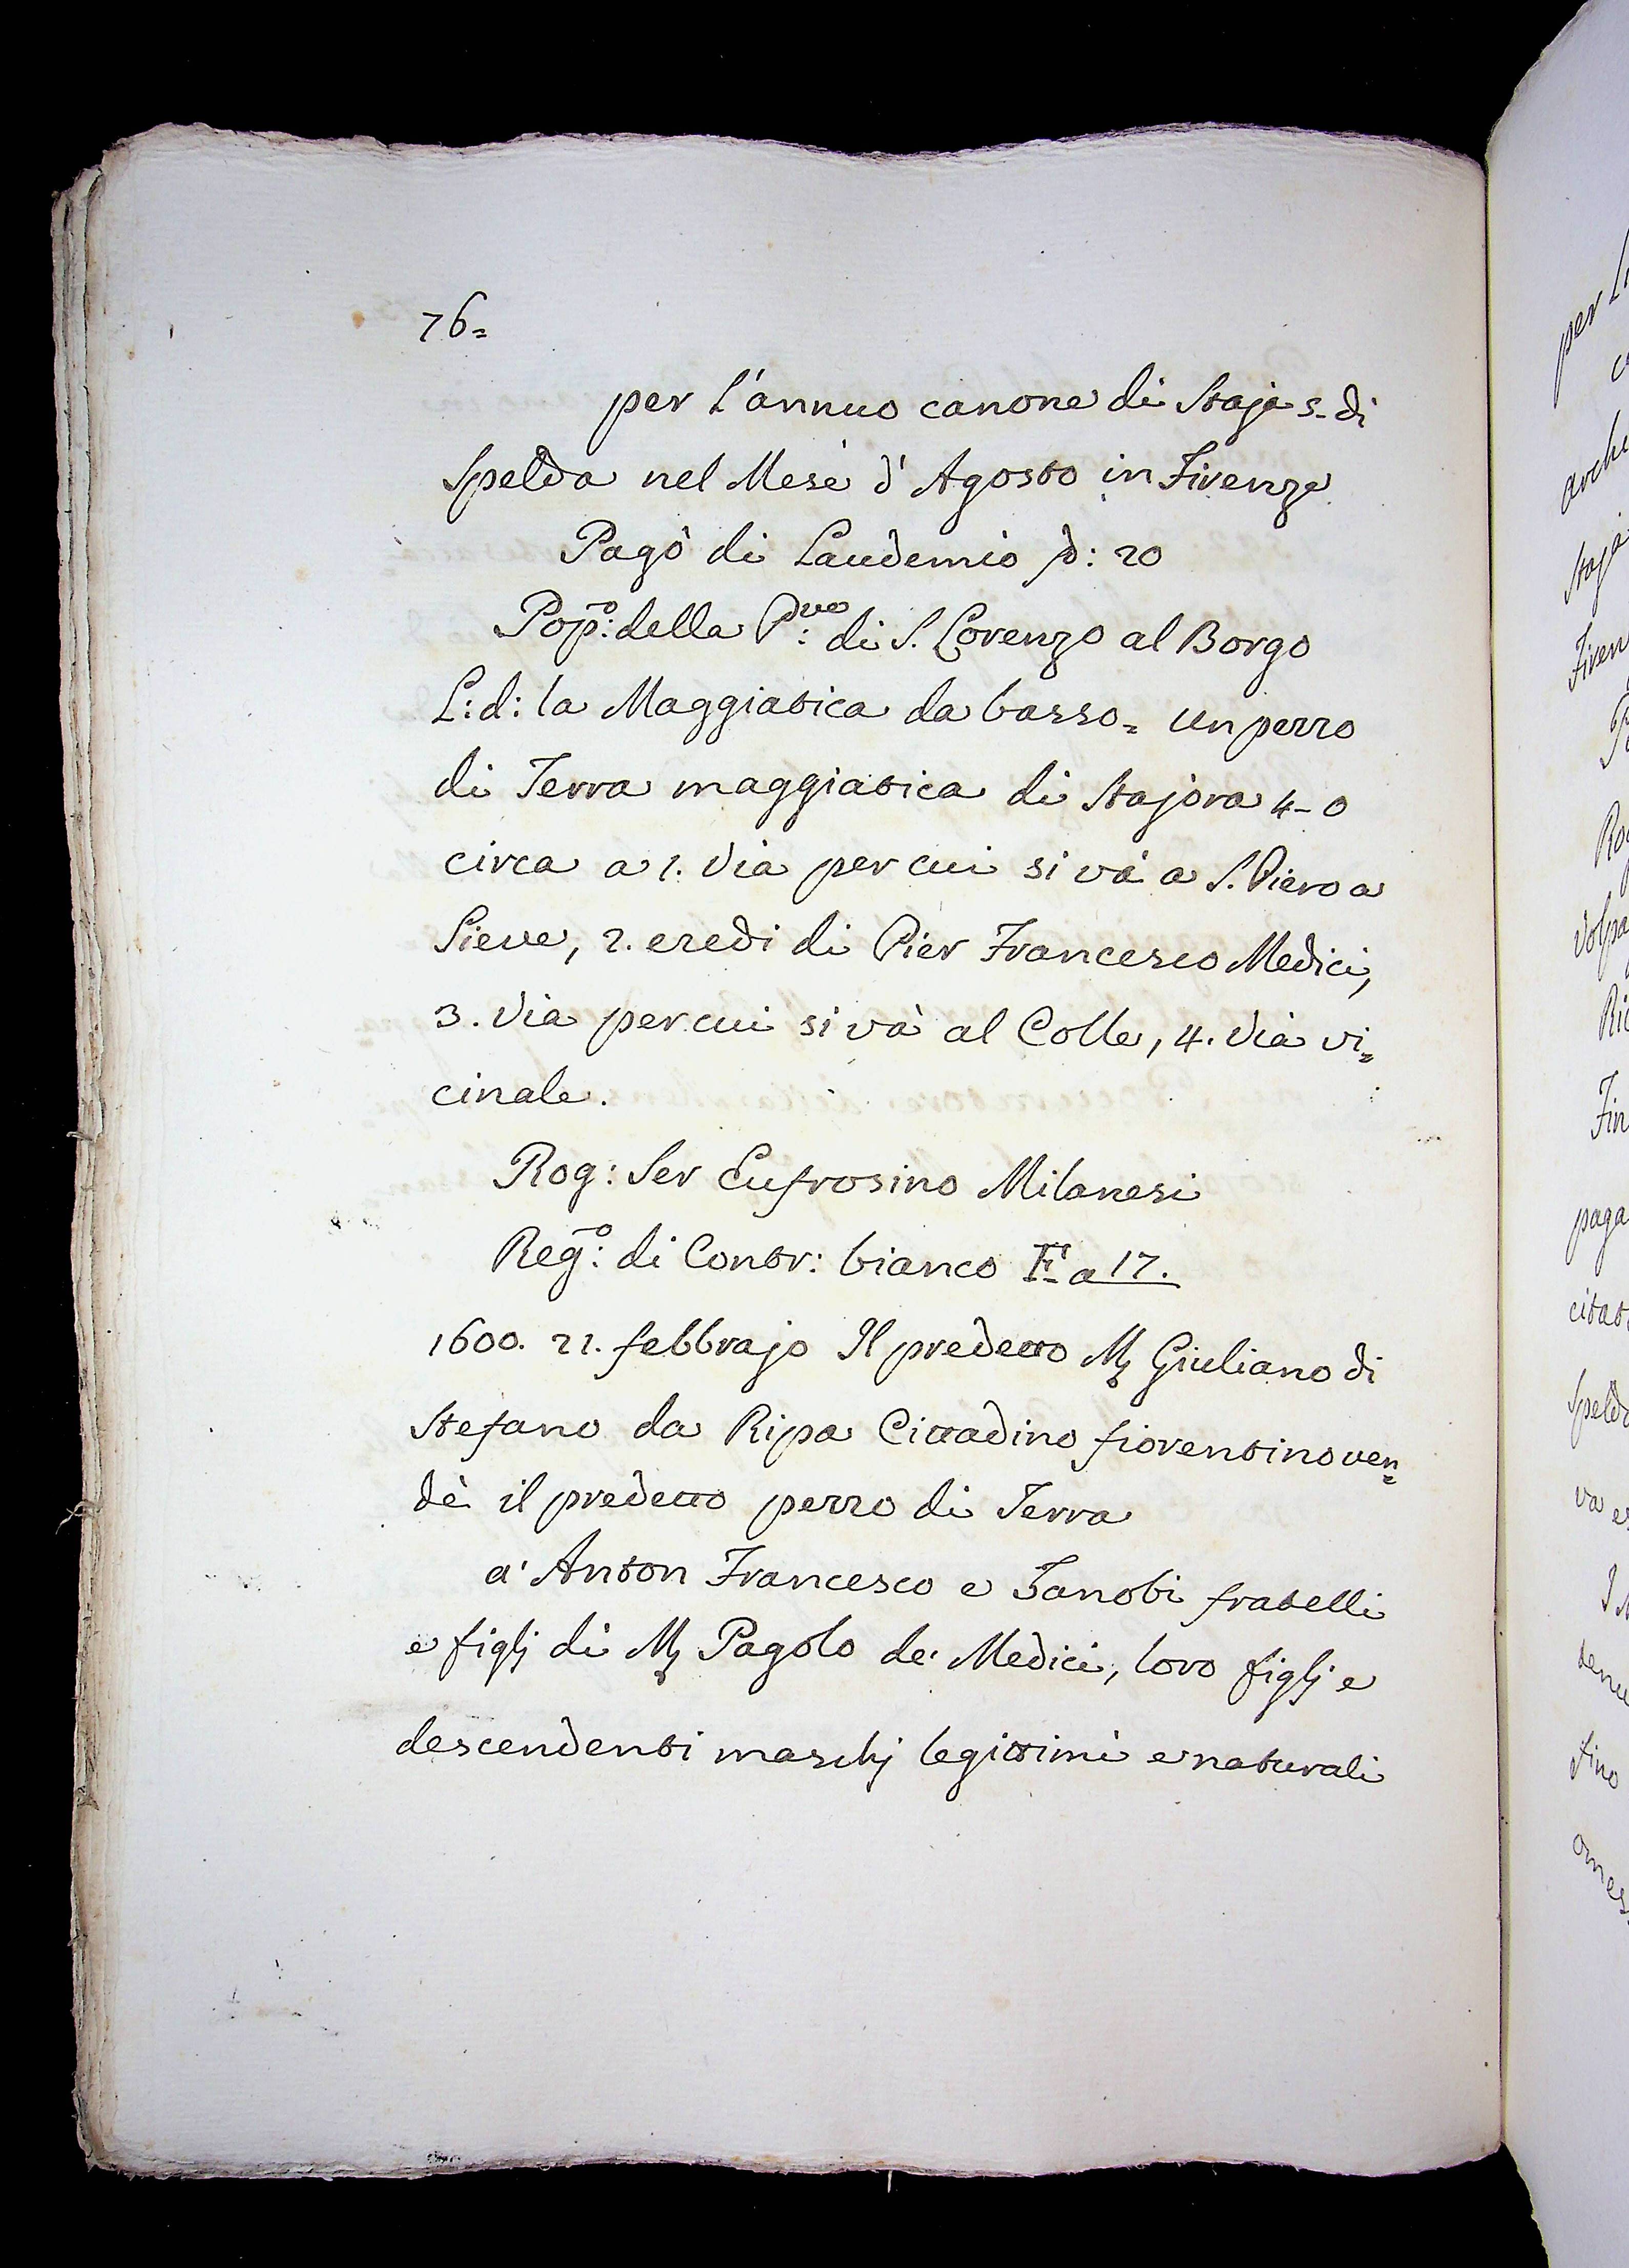 76=
per l'annuo canone di Staja 5- di
Spelda nel Mese d'Agosto in Firenze
Pagò di Laudemio ƥ: 20
Pop:º della P:ve di S. Lorenzo al Borgo
L: d: la Maggiatica da basso= un pezzo
di Terra maggiatica di Stajora 4-0
circa a 1. Via per cui si và a S. Piero a
Sieve, 2. eredi di Pier Francesco Medici,
3. Via per cui si và al Colle, 4. Via vi=
cinale.
Rog: Ser Eufrosino Milanesi
Reg:º di Contr: bianco F a 17.
1600. 21. febbrajo Il predetto M. Giuliano di
Stefano da Ripa Cittadino fiorentino ven=
dè il predetto pezzo di Terra
a' Anton Francesco e Zanobi fratelli
e figlj di M. Pagolo de' Medici, loro figlj e
descendenti maschj legittimi e naturali